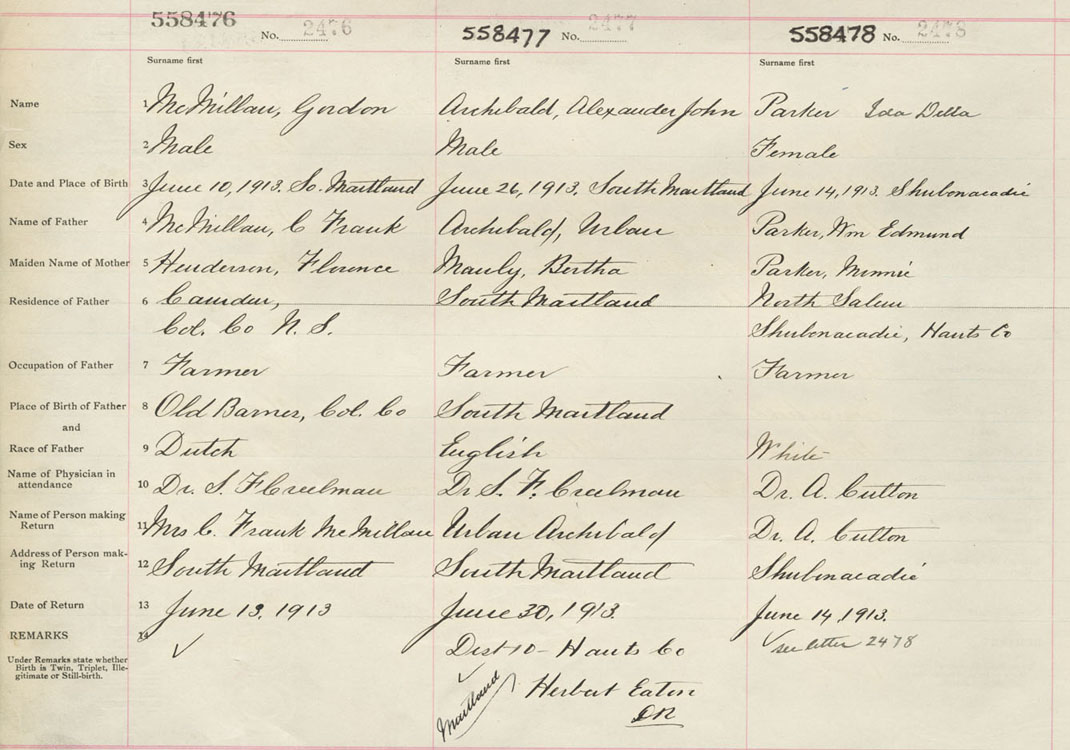 558476 No. 2476 558477 No. 2477 558478 No. 2478
Surname first Surname first Surname first
Name 1 McMillan, Gordon Archibald, Alexander John Parker Ida Della
Sex 2 Male Male Female
Date and Place of Birth 3 June 10, 1913. So. Maitland June 26, 1913, South Maitland June 14, 1913. Shubenacadie
Name of Father 4 McMillan, C Frank Archibald, Urban Parker, Wm Edmund
Maiden Name of Mother 5 Henderson, Florence Manly, Bertha Parker, Minnie
Residence of Father 6 Camden, South Maitland North Salem
Col. Co N. S. Shubenacadie, Hants Co
Occupation of Father 7 Farmer Farmer Farmer
Place of Birth of Father 8 Old Barnes, Col. Co South Maitland
and
Race of Father 9 Dutch English White
Name of Physician in
attendance 10 Dr. S. F Creelman Dr S. F. Creelman Dr. A. Cutton
Name of Person making
Return 11 Mrs C. Frank McMillan Urban Archibald Dr. A. Cutton
Address of Person mak-
ing Return 12 South Maitland South Maitland Shubenacadie
Date of Return 13 June 13, 1913 June 30, 1913. June 14, 1913.
REMARKS 14 ✓ Dist 10 - Hants Co ✓ see letter 2478
Under Remarks state whether
Birth is Twin, Triplet, Ille-
gitimate or Still-birth.
✓ Maitland Herbert Eaton
DR